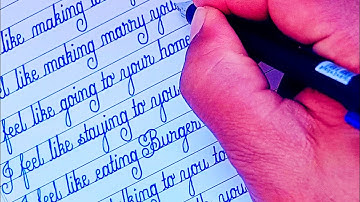 like making
l like making marry you
feel like going to your home
feel like staying to you
I feel like eating Burger
I feel like talking to you to